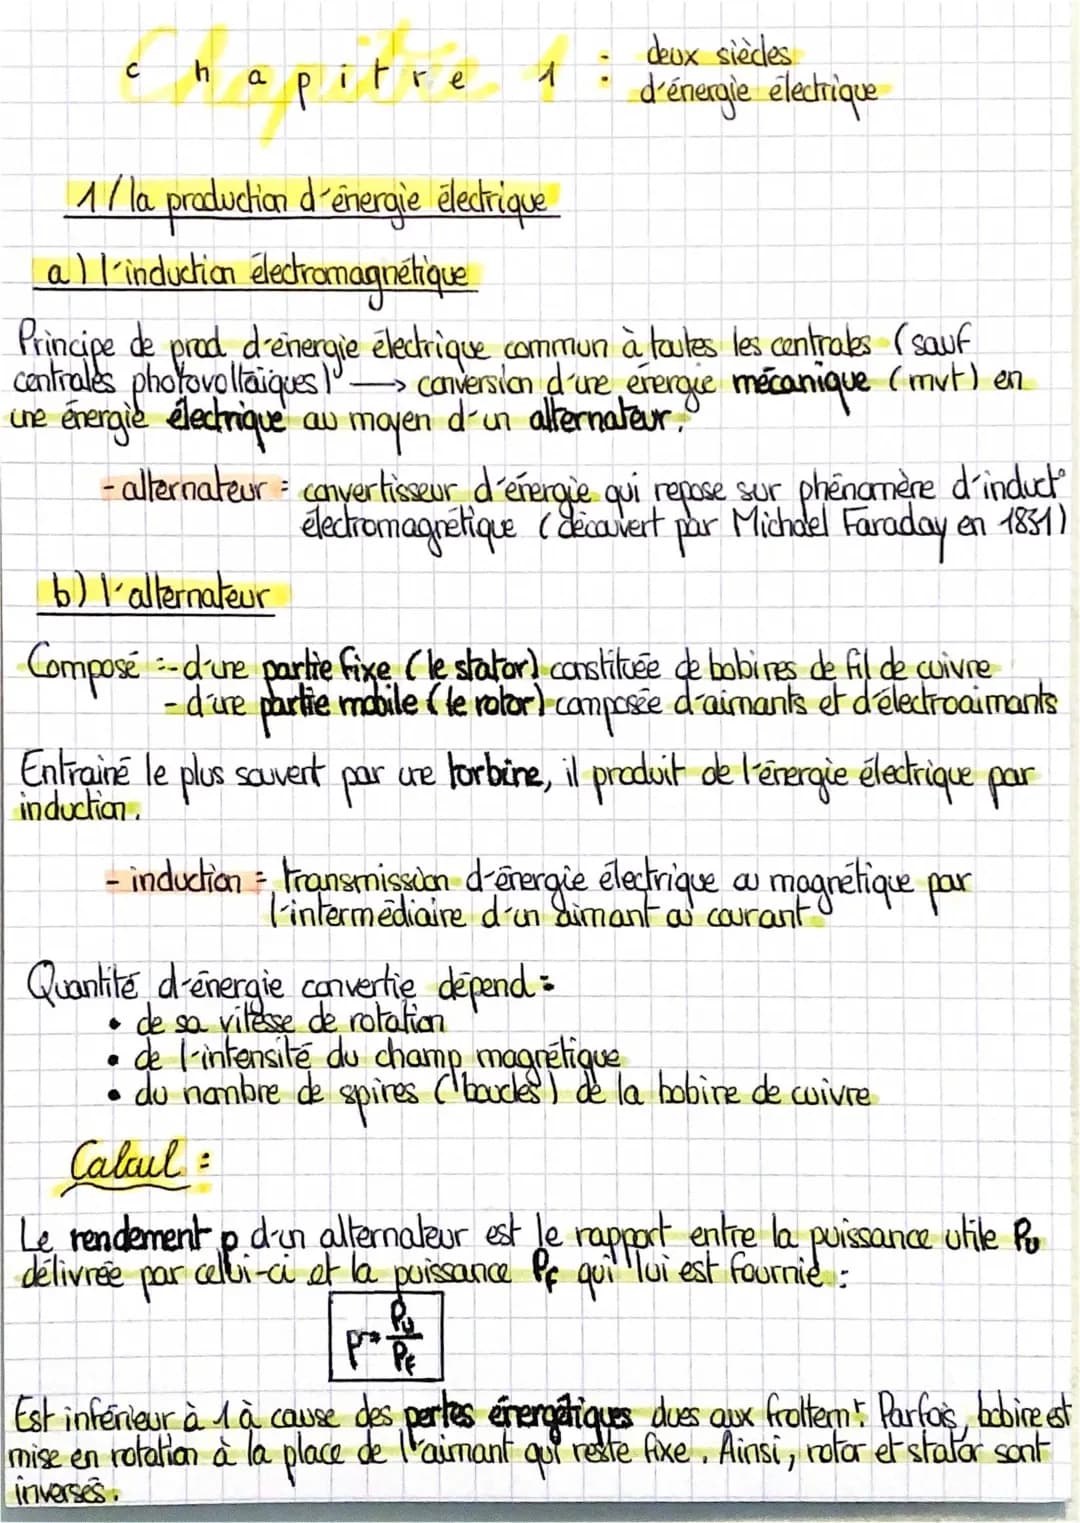 Chapitre 1 : deux siècles
d'énergie électrique
1/ la production d'énergie électrique
a) l'induction électromagnétique
Principe de prod d'énergie électrique commun à toutes les centrales (sauf
centrales photovoltaïques) → conversion d'une énergie mécanique (mvt) en
une énergie électrique au moyen d'un alternateur.
- alternateur = convertisseur d'énergie qui repose sur phénomère d'induct°
électromagnétique (découvert par Michael Faraday en 1831)
b) l'alternateur
Composé :- d'une partie fixe (le stator) constituée de bobines de fil de cuivre
- d'une partie mobile (le rotor) composée d'aimants et d'électroaimants
Entrainé le plus souvent par une torbine, il produit de l'énergie électrique par
induction.
- induction = transmission d'énergie électrique ou magnétique par
l'intermédiaire d'un aimant ou courant
Quantité d'énergie convertie dépend :
• de sa vitesse de rotation
• de l'intensité du champ magnétique
• du nombre de spires ("boucles") de la bobine de cuivre
Calcul :
Le rendement p d'un alternateur est le rapport entre la puissance utile Pu
délivrée par celui-ci et la puissance Pf qui lui est fournie :
p = Pu / Pf
Est inférieur à 1 à cause des pertes énergétiques dues aux frottemt. Parfois, bobine est
mise en rotation à la place de l'aimant qui reste fixe. Ainsi, rotor et stator sont
inversés.